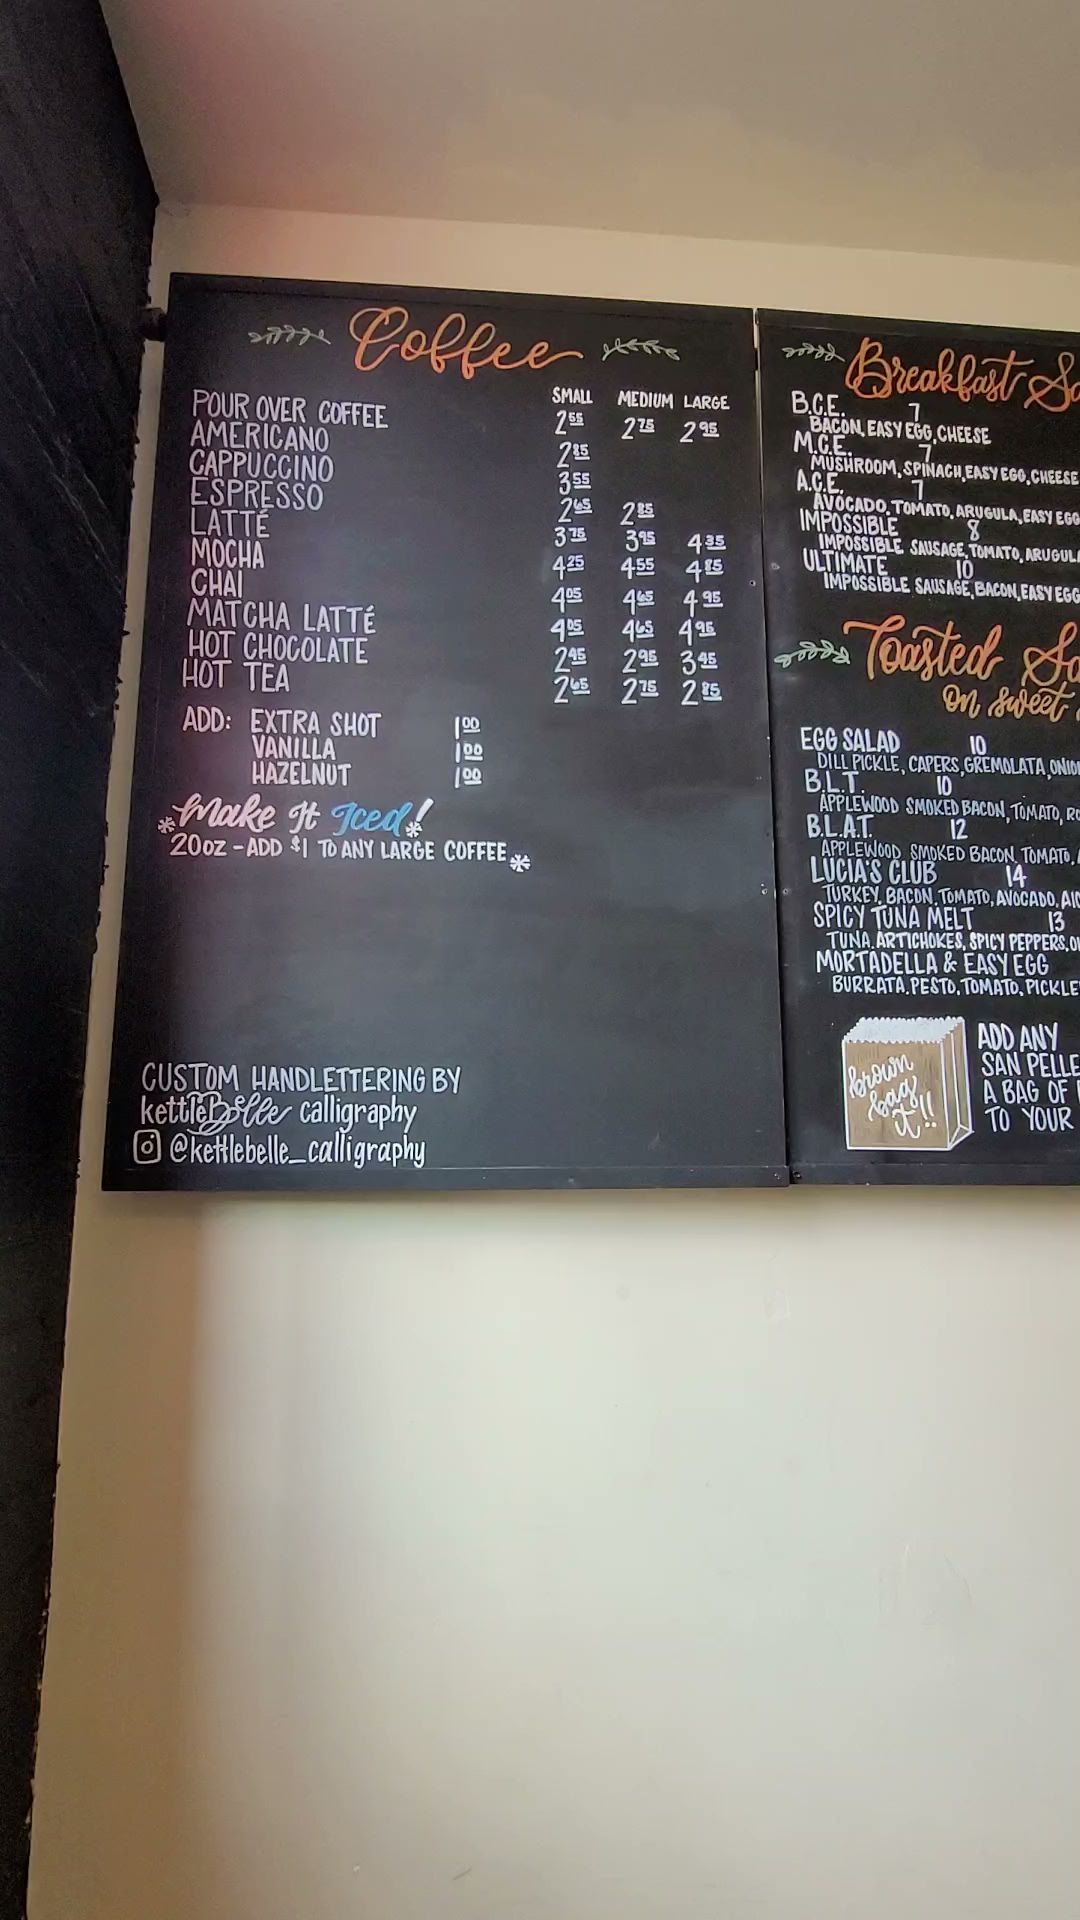 Coffee
SMALL MEDIUM LARGE
POUR OVER COFFEE 2.55 2.75 2.95
AMERICANO 2.85
CAPPUCCINO 3.55
ESPRESSO 2.65 2.85
LATTÉ 3.75 3.95 4.35
MOCHA 4.25 4.55 4.85
CHAI 4.05 4.65 4.95
MATCHA LATTÉ 4.05 4.65 4.95
HOT CHOCOLATE 2.45 2.95 3.45
HOT TEA 2.65 2.75 2.85
ADD: EXTRA SHOT 1.00
VANILLA 1.00
HAZELNUT 1.00
*Make It Iced!*
20oz - ADD $1 TO ANY LARGE COFFEE*
CUSTOM HANDLETTERING BY
kettleBelle calligraphy
@kettlebelle_calligraphy
Breakfast
B.C.E. 7
BACON, EASY EGG, CHEESE
M.C.E. 7
MUSHROOM, SPINACH, EASY EGG, CHEESE
A.C.E. 7
AVOCADO, TOMATO, ARUGULA, EASY EGG
IMPOSSIBLE 8
IMPOSSIBLE SAUSAGE, TOMATO, ARUGULA
ULTIMATE 10
IMPOSSIBLE SAUSAGE, BACON, EASY EGG
Toasted
on sweet
EGG SALAD 10
DILL PICKLE, CAPERS, GREMOLATA,
B.L.T. 10
APPLEWOOD SMOKED BACON, TOMATO,
B.L.A.T. 12
APPLEWOOD SMOKED BACON, TOMATO,
LUCIA'S CLUB 14
TURKEY, BACON, TOMATO, AVOCADO,
SPICY TUNA MELT 13
TUNA, ARTICHOKES, SPICY PEPPERS,
MORTADELLA & EASY EGG
BURRATA, PESTO, TOMATO,
brown
bag
it!!
ADD ANY
SAN
A BAG OF
TO YOUR